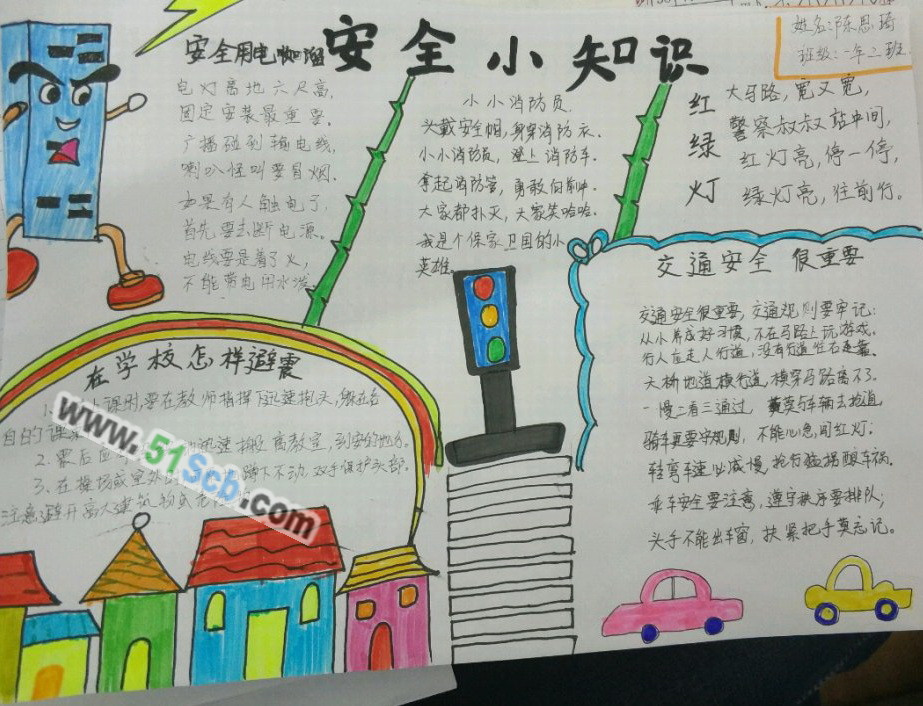 安全小知识
姓名:陈思琦
班级:一年二班
安全用电
电灯离地六尺高,
固定安装最重要.
广播碰到输电线,
喇叭怪叫要冒烟.
如果有人触电了,
首先要去断电源.
电线要是着了火,
不能带电用水泼.
小小消防员.
头戴安全帽,身穿消防衣.
小小消防员,坐上消防车.
拿起消防管,勇敢向前冲.
大家都扑灭,大家笑哈哈.
我是个保家卫国的小
英雄.
红绿灯
大马路,宽又宽,
警察叔叔站中间,
红灯亮,停一停,
绿灯亮,往前行。
交通安全 很重要
交通安全很重要,交通规则要牢记:
从小养成好习惯,不在马路上玩游戏。
行人应走人行道,没有行道往右走靠。
天桥地道横行道,横穿马路离不了。
一慢二看三通过,莫与车辆去抢道。
骑车更要守规则,不能心急闯红灯;
转弯车速必减慢,抢行猛拐酿车祸。
乘车安全要注意,遵守秩序要排队;
头手不能出车窗,扶紧把手莫忘记。
在学校怎样避震
上课时,要在教师指挥下迅速抱头,躲在各
自的课
2.震后 迅速撤离教室,到安的地方。
3、在操场或室外 蹲下不动双手保护头部。
注意避开高大建筑物
www.51Scb.com